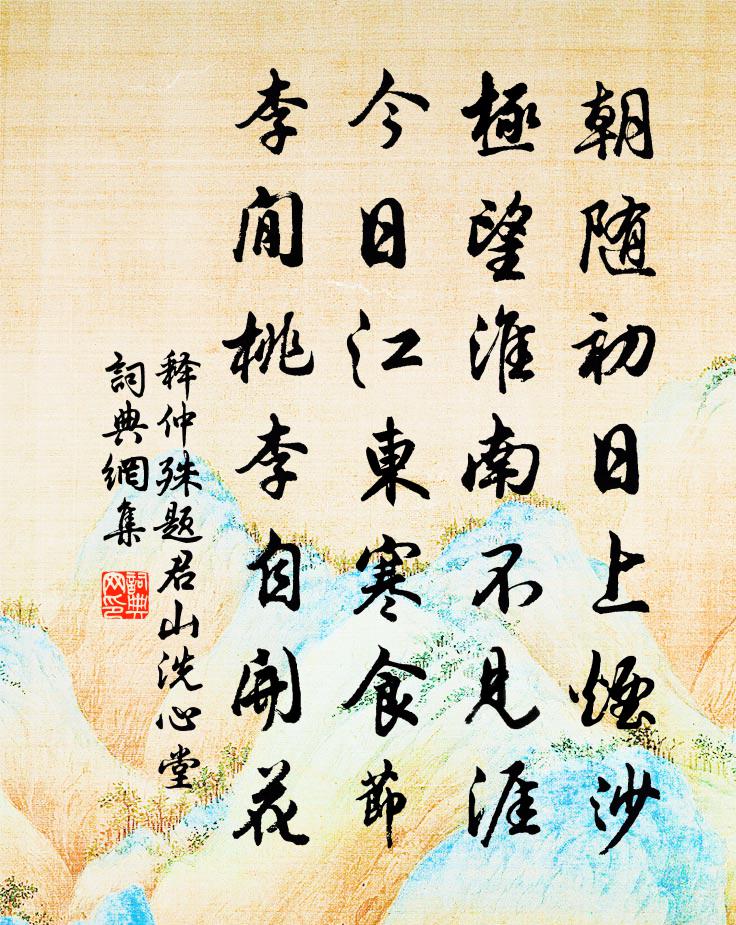 朝随初日上煙沙
極望淮南不見涯
今日江東寒食節
李閒桃李自開花
释仲殊题君山洗心堂
詞典網集
詞典網印